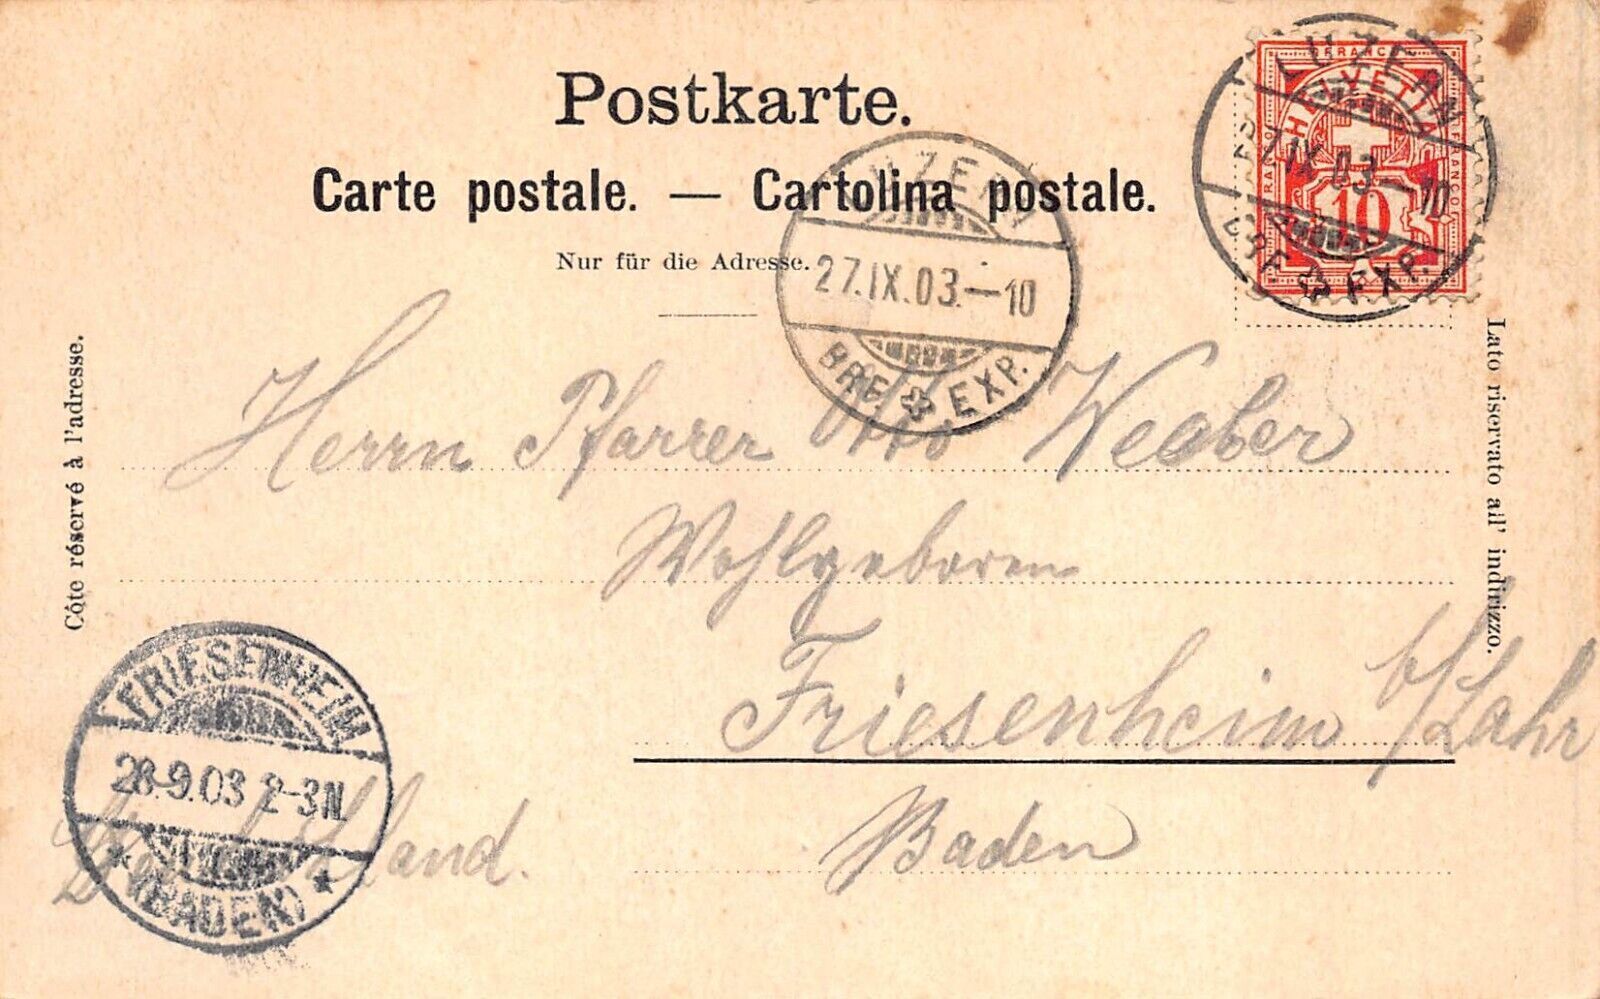 Postkarte.
Carte postale. — Cartolina postale.
Nur für die Adresse.
LUZERN
27.IX.03.–10
BRF. EXP.
LUZERN
27.IX.03.–10
BRF. EXP.
FRANCO
HELVETIA
FRANCO
FRANCO
10
Côte réservé à l'adresse.
Lato riservato all' indirizzo.
Herrn Pfarrer Otto Weober
Wohlgeboren
Friesenheim b/Lahr
Baden
Deutschland.
FRIESENHEIM
28.9.03 2-3N.
* (BADEN) *